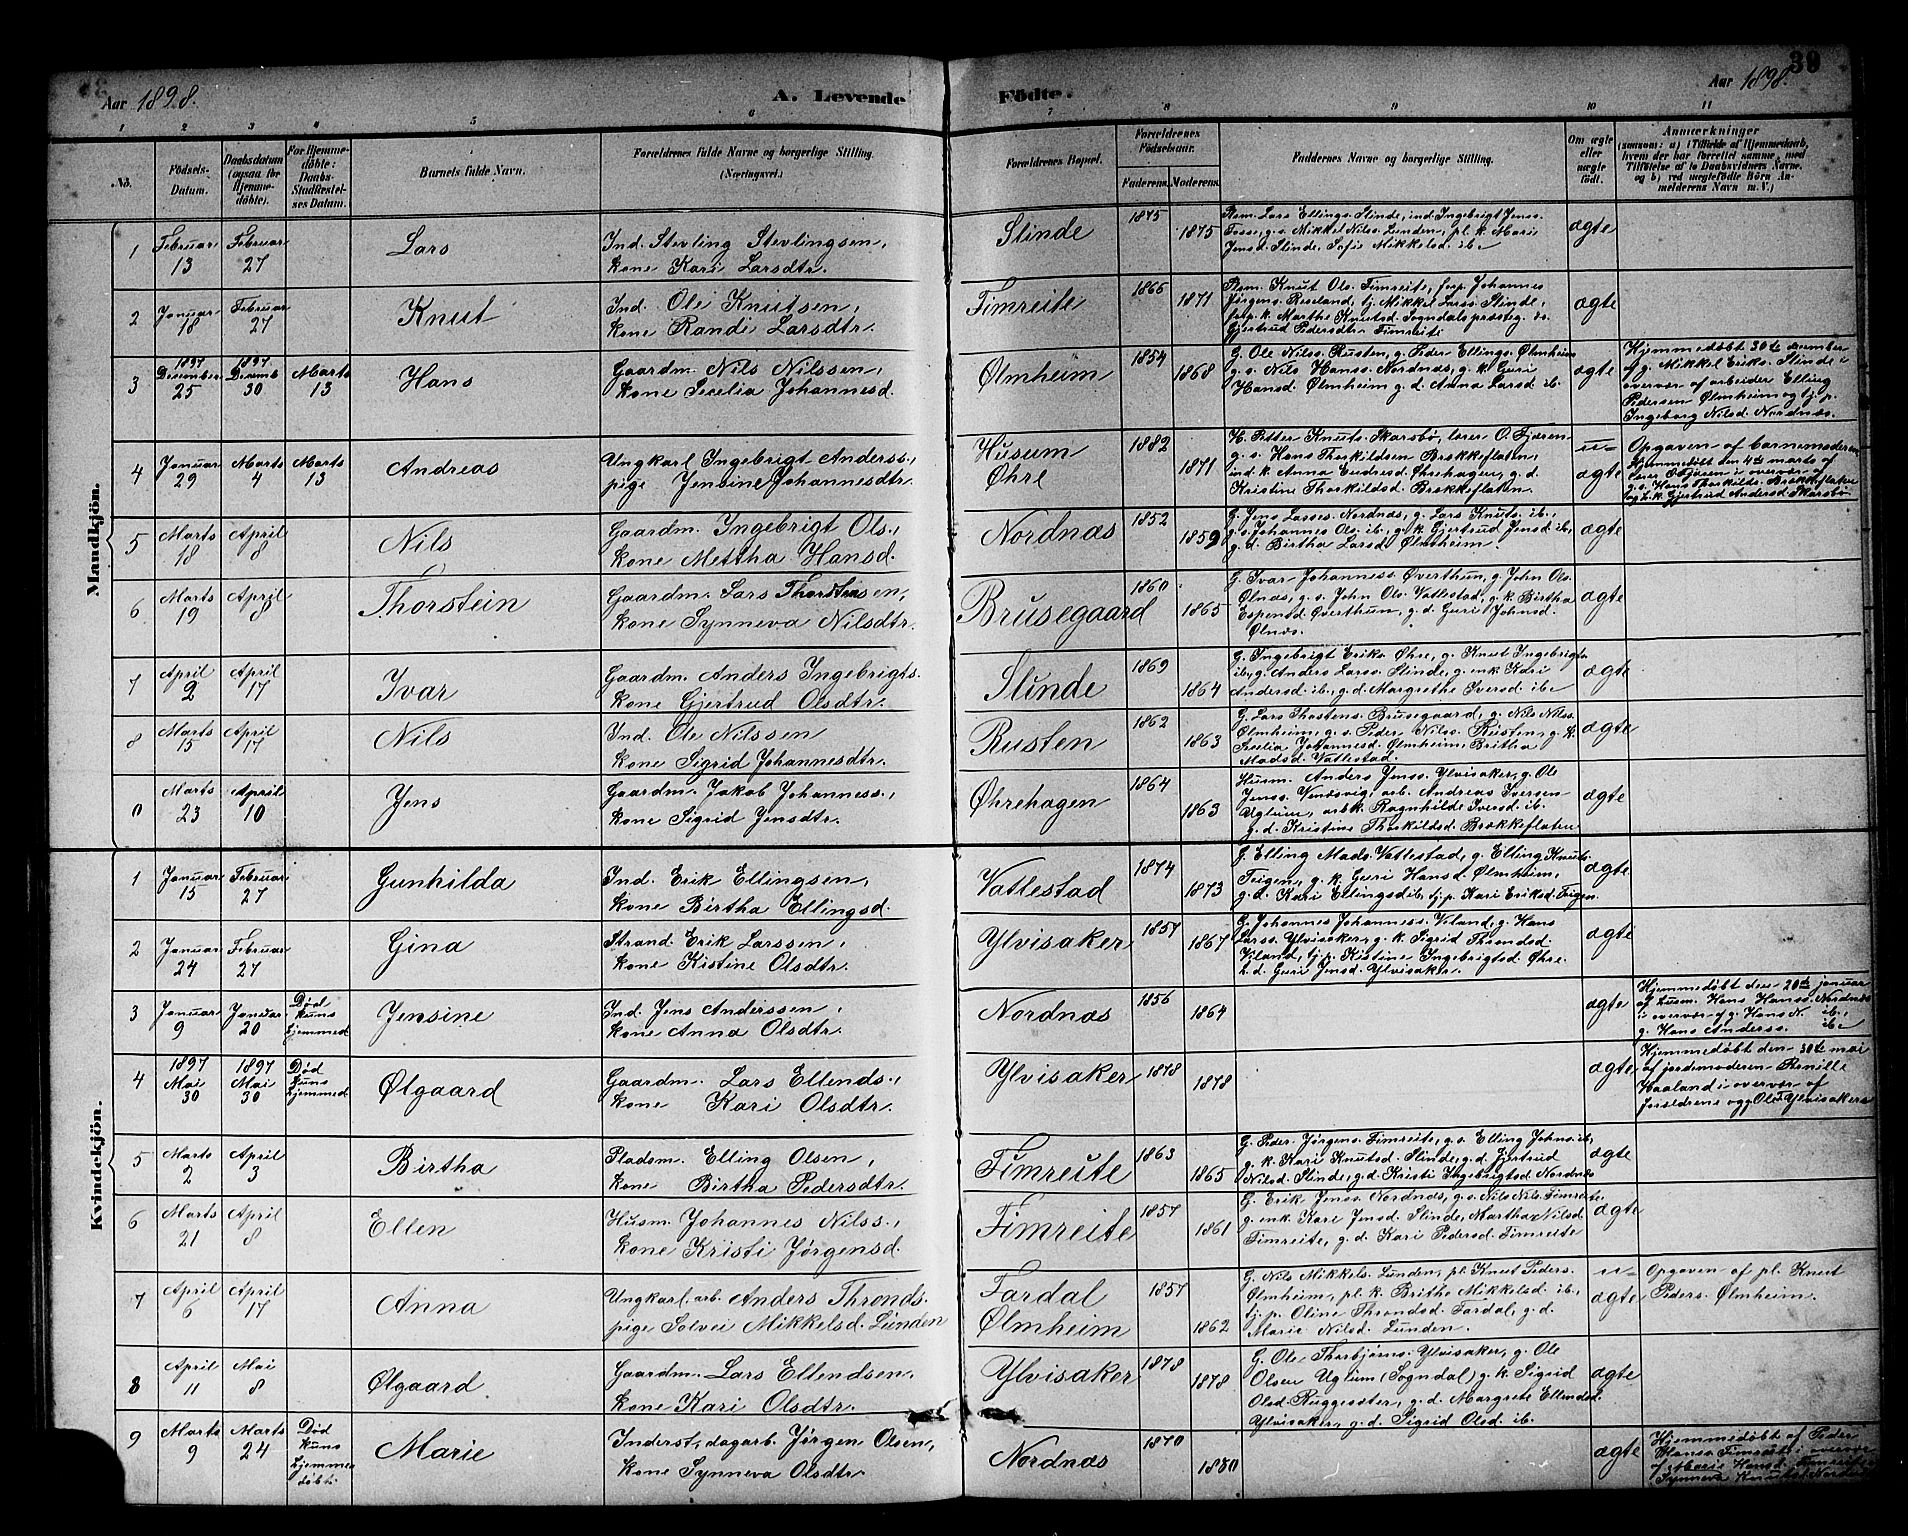 Aar 1898. A. Levende Födte. Aar 1898. 39
1 2 3 4 5 6 7 8 9 10 11
No. Födsels-Datum. Daabsdatum (ogsaa for Hjemmedöbte). For Hjemmedöbte: Daabs-Stadfæstelses Datum. Barnets fulde Navn. Forældrenes fulde Navne og borgerlige Stilling. (Næringsvei.) Forældrenes Bopæl. Forældrenes Födselsaar. Faderens. Moderens. Faddernes Navne og borgerlige Stilling. Om ægte eller uægte födt. Anmærkninger (saasom: a) i Tilfælde af Hjemmedaab, hvem der har forrettet samme, med Tilföielse af to Daabsvidners Navne, og b) ved uægtefödte Börn Anmelderens Navn m. V.)
Mandkjön.
1 Februar 13 Februar 27 Lars Ind. Stevling Stevlingsen, kone Kari Larsdtr. Slinde 1875 1875 Rsm. Lars Ellings. Slinde, ind. Ingebrigt Jens. Fosse, g.s. Mikkel Nils. Lunden, pl. k. Mari Jensd. Slinde, Sofie Mikkelsd. ib. ægte
2 Januar 18 Februar 27 Knut Ind. Ole Knutsen, kone Randi Larsdtr. Fimreite 1865 1871 Rsm. Knut Ols. Fimreite, Johannes Jørgens. Reseland, tj. Mikkel Larss. Slinde, k. Marthe Knutsd. Sogndals præsteg. Gjertrud Pedersdtr. Fimreite ægte
3 1897 December 25 1897 Decemb 30 Marts 13 Hans Gaardm. Nils Nilssen, kone Secelia Johannesd. Ølmheim 1854 1868 G. Ole Nilss. Rusten, g. Peder Ellings. Ølmheim g.s. Nils Hanss. Nordnæs, g.k. Guri Hansd. Ølmheim g.d. Anna Larsd. ib. ægte Hjemmedøbt 30te december af g. Mikkel Eriks. Slinde i overvær af arbeider Elling Pedersen Ølmheim og tj. p. Ingeborg Nilsd. Nordnæs.
4 Januar 29 Marts 4 Marts 13 Andreas Ungkarl Ingebrigt Anderss., pige Jensine Johannesdtr. Husum Øhre 1882 1871 H. Petter Knuts. Skarsbø, lærer O. Fjæren g.s. Hans Thorkildsen Brekkeflaten, ind. k. Anna Endresd. Øhrehagen, g.d. Kristine Thorkildsd. Brekkeflaten. u- ægte Opgaven af barnemoderen Hjemmedøbt den 4de marts af lærer O. Fjæren i overvær af g.s. Hans Thorkilds. Brekkeflaten og k. Gjertrud Andersd. Skarsbø
5 Marts 18 April 8 Nils Gaardm. Ingebrigt Ols., kone Mettha Hansd. Nordnæs 1852 1859 G. Jens Lasses. Nordnæs, g. Lars Knuts. ib., g.s. Johannes Ols. ib., g.k. Gjertrud Jensd. ib., g.d. Birtha Larsd. Ølmheim. ægte
6 Marts 19 April 8 Thorstein Gaardm. Lars Thorstensen, kone Synneva Nilsdtr. Brusegaard 1860 1865 G. Ivar Johanness. Øverthun, g. John Ols. Olnæs, g.s. John Ols. Vatlestad, g.k. Birtha Espensd. Øverthun, g.d. Guri Johnsd. Olnæs. ægte
7 April 2 April 17 Ivar Gaardm. Anders Ingebrigts. kone Gjertrud Olsdtr. Slinde 1869 1864 G. Ingebrigt Eriks. Øhre, g. Knut Ingebrigts. ib., g. Anders Larss. Slinde, g. enk. Kari Andersd. ib., g.d. Margrethe Iversd. ib. ægte
8 Marts 15 April 17 Nils Ind. Ole Nilssen kone Sigrid Johannesdtr. Rusten 1862 1863 G. Lars Thostens. Brusegaard, g. Nils Nilss. Ølmheim, g.s. Peder Nilss. Rusten, g.k. Secelia Johannesd. Ølmheim, Britha Madsd. Vatlestad. ægte
9 Marts 23 April 10 Jens Gaardm. Jakob Johanness., kone Sigrid Jensdtr. Øhrehagen 1864 1863 Husm. Anders Jenss. Ylvisaker, g. Ole Jenss. Venæsvig, arb. Andreas Iversen Uglum, arb.k. Ragnhilde Iversd. ib. g.d. Kristine Thorkildsd. Brekkeflaten ægte
Kvindekjön.
1 Januar 15 Februar 27 Gunhilda Ind. Erik Ellingsen, kone Birtha Ellingsd. Vatlestad 1874 1873 G. Elling Mads. Vatlestad, g. Elling Knuts. Teigen, g.k. Guri Hansd. Ølmheim, g.d. Kari Ellingsd. ib. tj. p. Kari Eriksd. Teigen. ægte
2 Januar 24 Februar 27 Gina Strand. Erik Larssen, kone Kistine Olsdtr. Ylvisaker 1857 1867 G. Johannes Johanness. Veland, g. Hans Larss. Ylvisaker, g.k. Sigrid Throndsd. Veland, tj. p. Kistine Ingebrigtsd. Øhre. d. Guri Jensd. Ylvisaker. ægte
3 Januar 9 Januar 20 Død kuns hjemmed Jensine Ind. Jens Anderssen, kone Anna Olsdtr. Nordnæs 1856 1864 ægte Hjemmedøbt den 20de januar af Husm. Hans Hanss. Nordnæs i overvær af g. Hans N. ib., g. Hans Anderss. ib.
4 1897 Mai 30 1897 Mai 30 Død kuns hjemmed Ølgaard Gaardm. Lars Ellends., kone Kari Olsdtr. Ylvisaker 1878 1878 ægte Hjemmedøbt den 30te mai af jordemoderen Pernille Haaland i overvær af forældrene og Ole T. Ylvisaker
5 Marts 2 April 3 Birtha Pladsm. Elling Olsen, kone Birtha Pedersdtr. Fimreite 1863 1865 G. Peder Jørgens. Fimreite, g.s. Elling Johns. ib., g.k. Kari Knutsd. Slinde, g.d. Gjertrud Nilsd. Slinde, g.d. Kristi Ingebrigtsd. Nordnæs ægte
6 Marts 21 April 8 Ellen Husm. Johannes Nilss., kone Kristi Jørgensd. Fimreite 1857 1861 G. Erik Jenss. Nordnæs, g.s. Nils Nils. Fimreite, g. enk. Kari Jensd. Slinde, Martha Nilsd. Fimreite, g.d. Kari Pedersd. Fimreite ægte
7 April 6 April 17 Anna Ungkarl. arb. Anders Thronds. pige Solvei Mikkelsd. Lunden Fardal Ølmheim 1857 1862 G. Nils Mikkels. Lunden, pl. Knut Peders. Ølmheim, pl. k. Britha Mikkelsd. ib., tj. p. Oline Throndsd. Fardal, g.d. Marie Nilsd. Lunden. u- ægte Opgaven af pl. Knut Peders. Ølmheim.
8 April 11 Mai 8 Ølgaard Gaardm. Lars Ellendsen, kone Kari Olsdtr. Ylvisaker 1878 1878 G. Ole Thorbjørns. Ylvisaker, g. Ole Olsen Uglum (Sogndal) g.k. Sigrid Olsd. Ruggesæter, g.d. Margrete Ellendsd. Ylvisaker, g.d. Sigrid Olsd. ib. ægte
9 Marts 9 Marts 24 Død kuns hjemmedøbt Marie Inderst, dagarb. Jørgen Olsen, kone Synneva Olsdtr. Nordnæs 1870 1880 ægte Hjemmedøbt af Peder Hanss. Fimreite i overvær af Marie Hansd. Fimreite Synneva Knutsd. Nordnæs